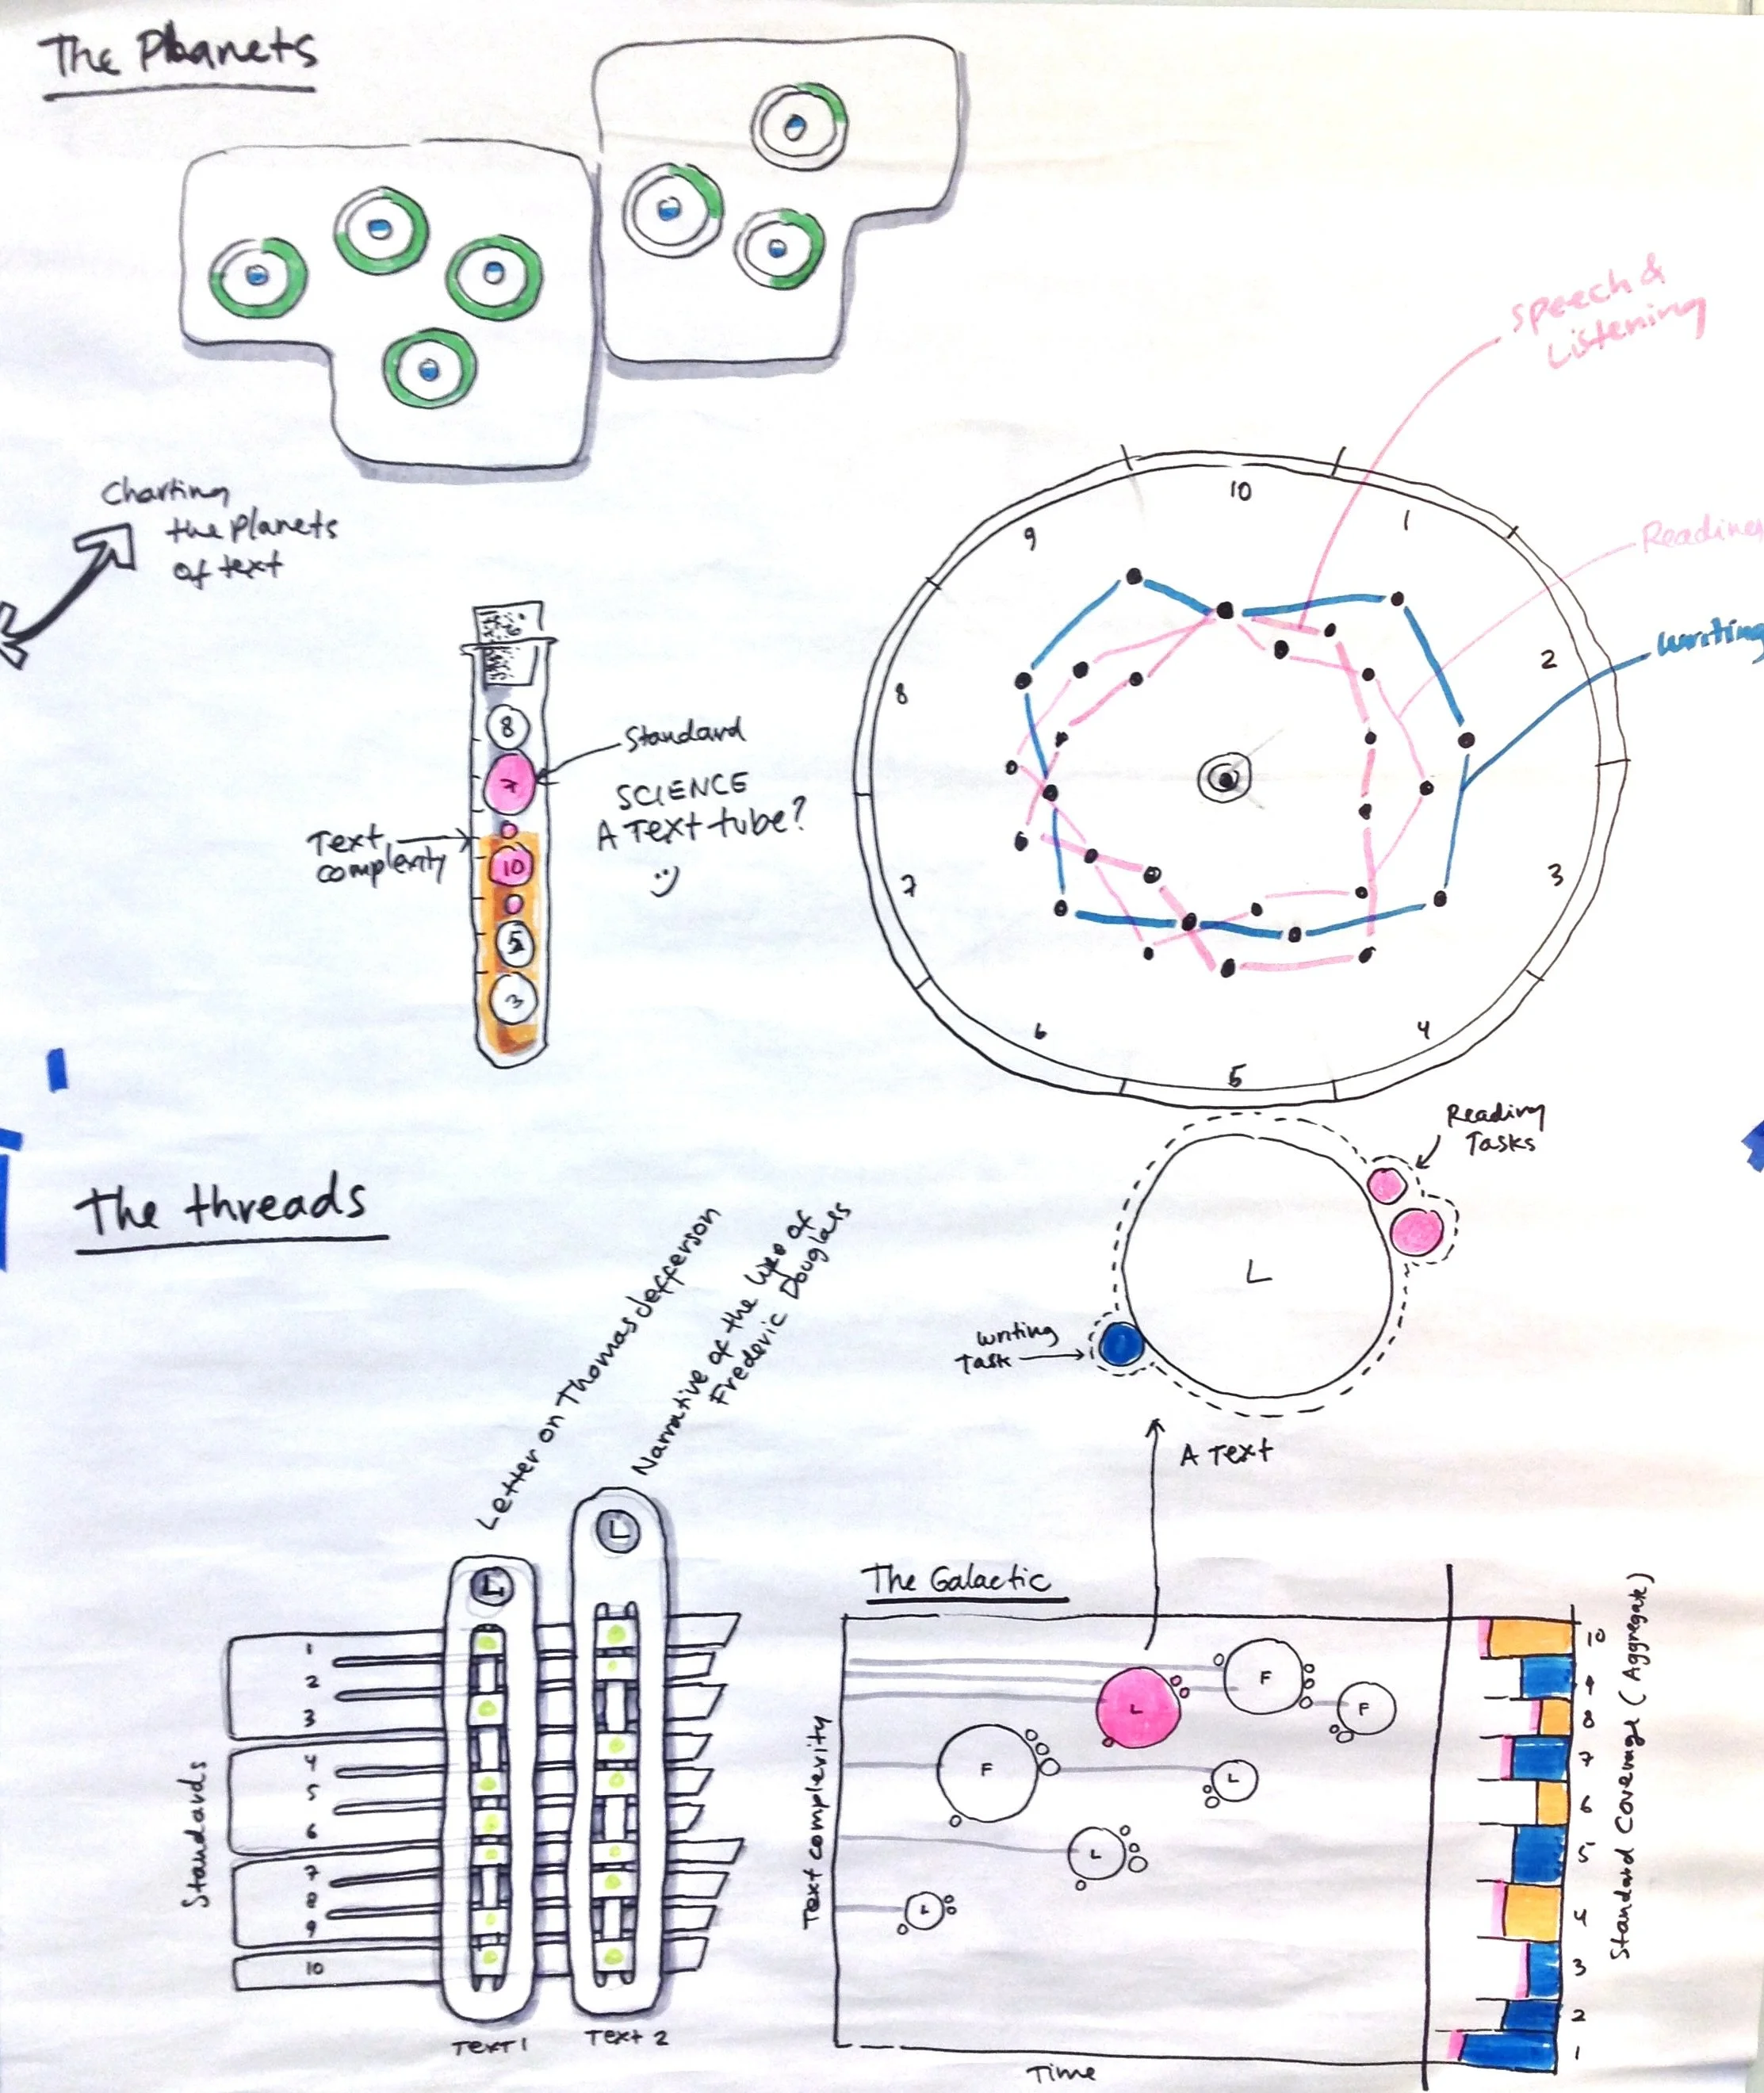 The Planets
Charting
the planets
of text
8
7
10
5
3
Standard
SCIENCE
A Text tube?
Text
complexity
Speech &
Listening
Reading
Writing
10
1
2
3
4
5
6
7
8
9
Reading
Tasks
L
Writing
Task
A Text
The threads
Letter on Thomas Jefferson
Narrative of the life of
Frederic Douglass
L
L
Standards
1
2
3
4
5
6
7
8
9
10
Text 1
Text 2
The Galactic
Text complexity
Time
F
L
F
F
L
L
L
10
9
8
7
6
5
4
3
2
1
Standard Coverage (Aggregate)